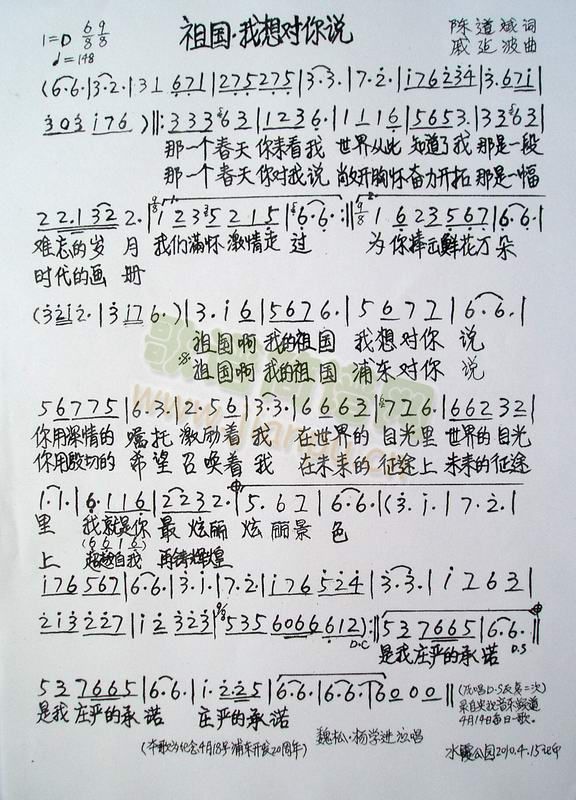 祖国·我想对你说
1=D 6/8 9/8
♩=148
陈道斌词
戚建波曲
(6·6·|3·2·|31 671|275275|3·3·|7·2·|i76234|3·67i|
303 i76 )‖:33363|1236·|1116|5653·|33363|
那一个春天你来看我 世界从此 知道了我 那是一段
那一个春天你对我说 敞开胸怀奋力开拓 那是一幅
22·132 2·|1235215|6·6·:‖1623567|6·6·|
难忘的岁 月 我们满怀激情走 过 为你捧出鲜花万朵
时代的画 册
(3212·|3176·)|3·i6|5676·|5677|6·6·|
祖国啊 我的祖国 我想对你 说
祖国啊 我的祖国 浦东对你 说
56775|6·3·|2·56|3·3·|66663|726·|66232|
你用深情的 嘱托 激励着 我 在世界的 目光里 世界的目光
你用殷切的 希望 召唤着 我 在未来的 征途上 未来的征途
1·1·|6·116|2232·|5·67|6·6·|(3·i·|7·2·|
里 我就是你 最 炫丽 炫丽景 色
(6616)
上 超越自我 再铸辉煌
i76567|6·6·|3·i·|7·2·|i76524|3·3·|i763|
213227|i2323|5356066612):‖537665|6·6·‖
D.C
D.S
是我庄严的承诺
537665|6·6·|i·225|6·6·|6·6·|6000‖
是我庄严的承 诺 庄严的承诺
(反唱D.S反复二次)
采自央视音乐频道
4月14日每日一歌。
(本歌为纪念4月18号浦东开发20周年)
魏松·杨学进演唱
水霞公园2010.4.15
www.jianpu.cn